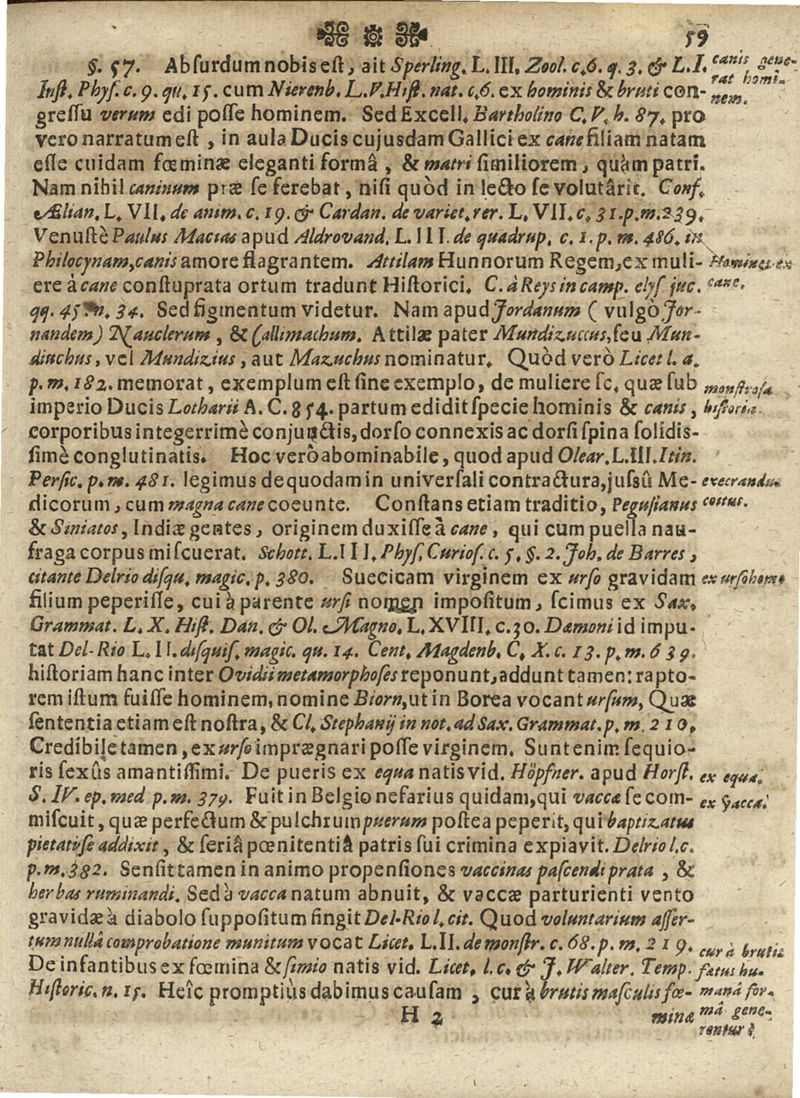 59
§. 57. Abſurdum nobis eſt, ait Sperling. L. III. Zool. c. 6. q. 3. & L. I.
Inſt. Phyſ. c. 9. qu. 15. cum Nierenb. L. V. Hiſt. nat. c. 6. ex hominis & bruti con-
greſſu verum edi poſſe hominem. Sed Excell. Bartholino C. V. h. 87. pro
vero narratum eſt, in aula Ducis cujusdam Gallici ex cane filiam natam
eſſe cuidam fœminæ eleganti formâ, & matri ſimiliorem, quàm patri.
Nam nihil caninum præ ſe ferebat, niſi quòd in lecto ſe volutârit. Conf.
Ælian. L. VII. de anim. c. 19. & Cardan. de variet. rer. L. VII. c. 31. p. m. 239.
Venuſtè Paulus Macias apud Aldrovand. L. III. de quadrup. c. 1. p. m. 486. in
Philocynam, canis amore flagrantem. Attilam Hunnorum Regem, ex muli-
ere à cane conſtuprata ortum tradunt Hiſtorici. C. à Reys in camp. elyſ juc.
qq. 45. n. 34. Sed figmentum videtur. Nam apud Jordanum (vulgò Jor-
nandem) Nauclerum, & Callimachum. Attilæ pater Mundizuccus, ſeu Mun-
diuchus, vel Mundizius, aut Mazuchus nominatur. Quòd verò Licet l. a.
p. m. 182. memorat, exemplum eſt ſine exemplo, de muliere ſc. quæ ſub
imperio Ducis Lotharii A. C. 854. partum edidit ſpecie hominis & canis,
corporibus integerrimè conjunctis, dorſo connexis ac dorſi ſpina ſolidis-
ſimè conglutinatis. Hoc verò abominabile, quod apud Olear. L. III. Itin.
Perſic. p. m. 481. legimus de quodam in univerſali contractura, juſsû Me-
dicorum, cum magna cane coeunte. Conſtans etiam traditio, Peguſianus
& Siniatos, Indiæ gentes, originem duxiſſe à cane, qui cum puella nau-
fraga corpus miſcuerat. Schott. L. III. Phyſ. Curioſ. c. 5. §. 2. Joh. de Barres,
citante Delrio diſqu. magic. p. 380. Suecicam virginem ex urſo gravidam
filium peperiſſe, cui à parente urſi nomen impoſitum, ſcimus ex Sax.
Grammat. L. X. Hiſt. Dan. & Ol. Magno. L. XVIII. c. 30. Dæmoni id impu-
tat Del-Rio L. II. diſquiſ. magic. qu. 14. Cent. Magdenb. C. X. c. 13. p. m. 639.
hiſtoriam hanc inter Ovidii metamorphoſes reponunt, addunt tamen: rapto-
rem iſtum fuiſſe hominem, nomine Biorn, ut in Borea vocant urſum, Quæ
ſententia etiam eſt noſtra, & Cl. Stephanij in not. ad Sax. Grammat. p. m. 210.
Credibile tamen, ex urſo imprægnari poſſe virginem. Sunt enim ſequio-
ris ſexûs amantiſſimi. De pueris ex equa natis vid. Höpfner. apud Horſt.
S. IV. ep. med p. m. 379. Fuit in Belgio nefarius quidam, qui vacca ſe com-
miſcuit, quæ perfectum & pulchrum puerum poſtea peperit, qui baptizatus
pietati ſe addixit, & ſeriâ pœnitentiâ patris ſui crimina expiavit. Delrio l. c.
p. m. 382. Senſit tamen in animo propenſiones vaccinas paſcendi prata, &
herbas ruminandi. Sed à vacca natum abnuit, & vaccæ parturienti vento
gravidæ à diabolo ſuppoſitum fingit Del-Rio l. cit. Quod voluntarium aſſer-
tum nullâ comprobatione munitum vocat Licet. L. II. de monſtr. c. 68. p. m. 219.
De infantibus ex fœmina & ſimio natis vid. Licet. l. c. & J. Walter. Temp.
Hiſtoric. n. 15. Heîc promptiùs dabimus cauſam, cur à brutis maſculis fœ-
H 2
minæ
canis gene-
rat homi-
nem.
Homines ex
cane.
monſtroſa
hiſtoria.
execrandus
coitus.
ex urſo homo
ex equa.
ex vacca.
cur à brutis
fœtus hu-
manâ for-
mâ gene-
rentur?